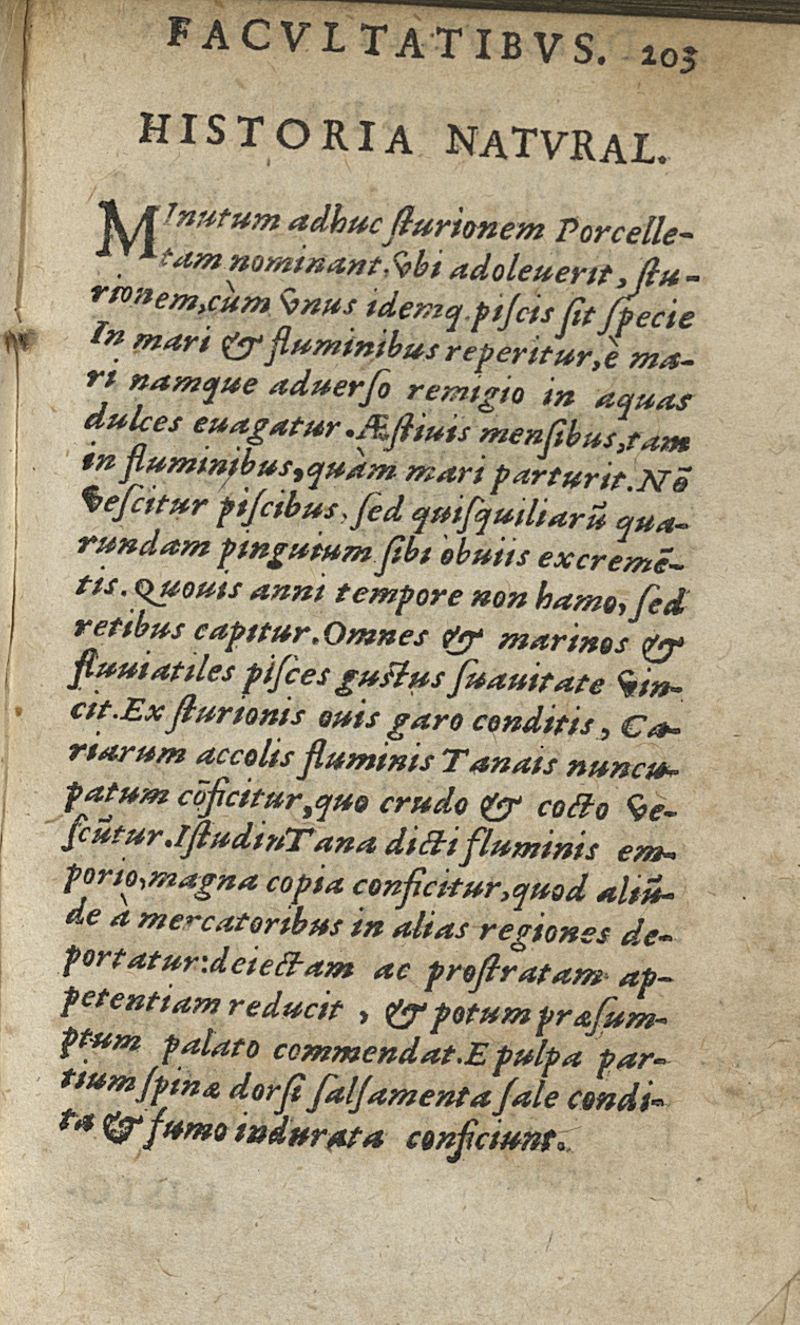 FACVLTATIBVS. 203
HISTORIA NATVRAL.
MInutum adhuc ſturionem Porcelle-
tam nominant, vbi adoleuerit, ſtu-
rionem, cùm vnus idemq. piſcis ſit ſpecie
In mari & fluminibus reperitur, è ma-
ri namque aduerſo remigio in aquas
dulces euagatur. Æſtiuis menſibus, tam
in fluminibus, quàm mari parturit. Nō
veſcitur piſcibus, ſed quiſquiliarū qua-
rundam pinguium ſibi òbuiis excremē-
tis. Quouis anni tempore non hamo, ſed
retibus capitur. Omnes & marinos &
fluuiatiles piſces guſtus ſuauitate vin-
cit. Ex ſturionis ouis garo conditis, Ca-
riarum accolis fluminis Tanais nuncu-
patum cōficitur, quo crudo & cocto ve-
ſcūtur. Iſtud in Tana dicti fluminis em-
porio, magna copia conficitur, quod aliū-
de à mercatoribus in alias regiones de-
portatur: deiectam ac proſtratam ap-
petentiam reducit , & potum præſum-
ptum palato commendat. E pulpa par-
tium ſpinæ dorſi ſalſamenta ſale condi-
ta & fumo indurata conficiunt.